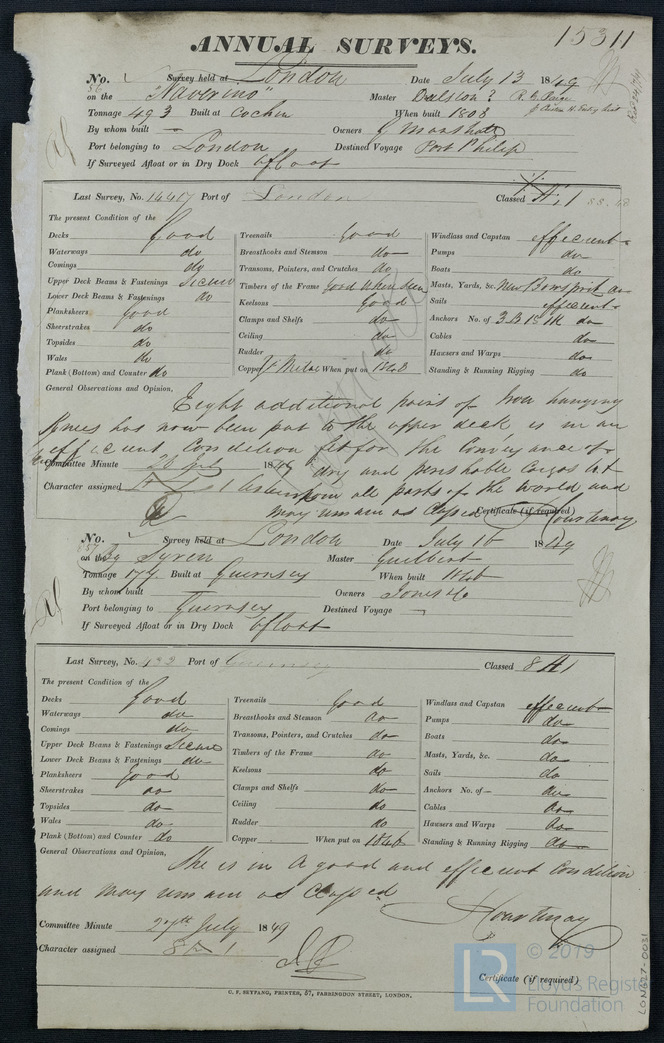 ANNUAL SURVEYS. 15311
No. Survey held at London Date July 13 1849
56 on the "Navarino" Master
Tonnage 493 Built at Cochin When built 1808
By whom built — Owners J Marshall
Port belonging to London Destined Voyage Port Philip
If Surveyed Afloat or in Dry Dock afloat
Last Survey, No. 14417 Port of London Classed Æ 1
The present Condition of the
Decks Good
Waterways do
Comings do
Upper Deck Beams & Fastenings Secure
Lower Deck Beams & Fastenings do
Planksheers Good
Sheerstrakes do
Topsides do
Wales do
Plank (Bottom) and Counter do
Treenails Good
Breasthooks and Stemson do
Transoms, Pointers, and Crutches do
Timbers of the Frame Good when seen
Keelsons Good
Clamps and Shelfs do
Ceiling do
Rudder do
Copper Y Metal When put on 1848
Windlass and Capstan efficient
Pumps do
Boats do
Masts, Yards, &c. New Bowsprit
Sails efficient
Anchors No. of 3 B 1 S 1 K do
Cables do
Hawsers and Warps do
Standing & Running Rigging do
General Observations and Opinion,
Eight additional pairs of Iron hanging
Knees has now been put to the upper deck is in an
efficient Condition fit for the Conveyance of
dry and perishable Cargos to &
from all parts of the World and
may remain as Classed Courtenay
Committee Minute 1849
Character assigned Æ 1
Certificate (if required)
No. Survey held at London Date July 16 1849
57 on the Bg Syren Master Guilbert
Tonnage 179 Built at Guernsey When built 1846
By whom built Owners Jones & Co
Port belonging to Guernsey Destined Voyage —
If Surveyed Afloat or in Dry Dock afloat
Last Survey, No. 432 Port of Guernsey Classed 8 A 1
The present Condition of the
Decks Good
Waterways do
Comings do
Upper Deck Beams & Fastenings Secure
Lower Deck Beams & Fastenings do
Planksheers Good
Sheerstrakes do
Topsides do
Wales do
Plank (Bottom) and Counter do
Treenails Good
Breasthooks and Stemson do
Transoms, Pointers, and Crutches do
Timbers of the Frame do
Keelsons do
Clamps and Shelfs do
Ceiling do
Rudder do
Copper When put on 1846
Windlass and Capstan efficient
Pumps do
Boats do
Masts, Yards, &c. do
Sails do
Anchors No. of do
Cables do
Hawsers and Warps do
Standing & Running Rigging do
General Observations and Opinion,
She is in a good and efficient Condition
and may remain as Classed
Courtenay
Committee Minute 27th July 1849
Character assigned 8 A 1
Certificate (if required)
C. F. SEYFANG, PRINTER, 57, FARRINGDON STREET, LONDON.
LR © 2019
Lloyd's Register
Foundation
LON627-0031